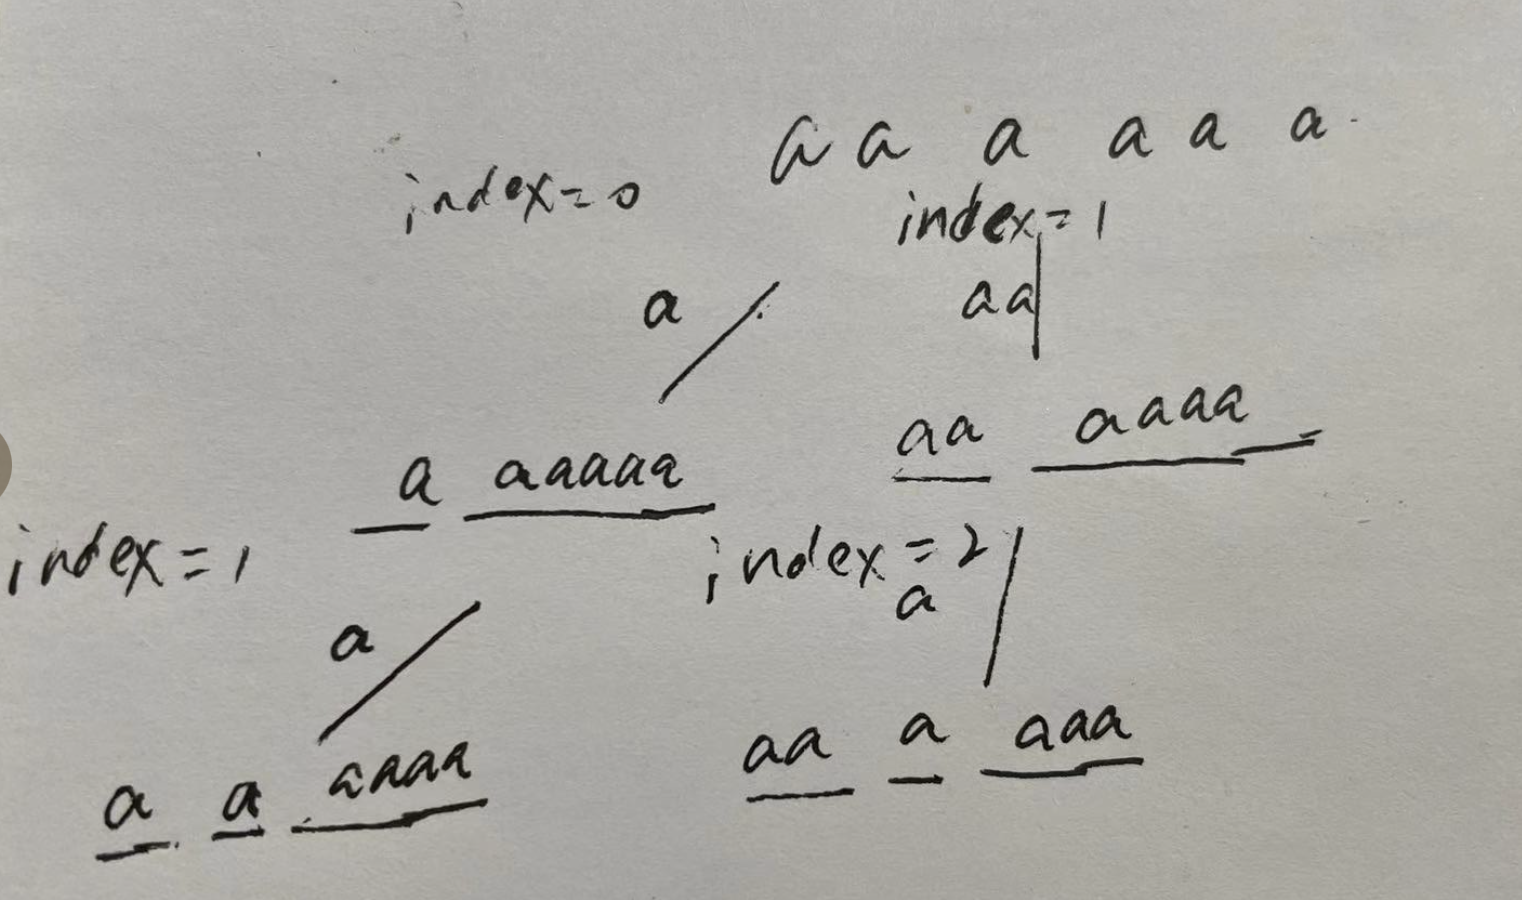 a a a a a a
index=0
index=1
a
aa
a aaaaa
aa aaaa
index=1
index=2
a
a
a a aaaa
aa a aaa